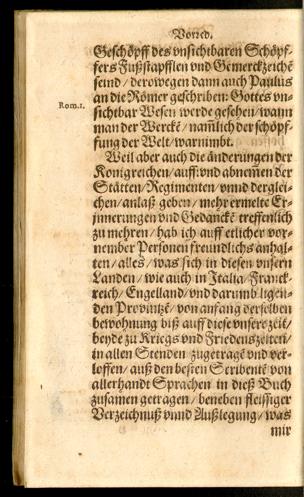 Vorred.
Geschöpff des vnsichtbaren Schöpf-
fers Fußstapfflen vnd Gemerckzeichē
seind / derowegen dann auch Paulus
an die Römer geschriben: Gottes vn-
Rom.1.
sichtbar Wesen werde gesehen / wann
man der Werckē / nam̄lich der schöpf-
fung der Welt / warnimbt.
Weil aber auch die änderungen der
Königreichen / auff: vnd abnemen der
Stätten / Regimenten / vnnd derglei-
chen / anlaß geben / mehr ermelte Er-
jnnerungen vnd Gedanckē treffenlich
zu mehren / hab ich auff etlicher vor-
nember Personen freundlichs anhal-
ten / alles / was sich in disen vnsern
Landen / wie auch in Italia / Franck-
reich / Engelland / vnd darumb ligen-
den Provintzē / von anfang derselben
bewohnung biß auff dise vnsere zeit /
beyde zu Kriegs vnd Friedenszeiten /
in allen Stenden zugetragē vnd ver-
loffen / auß den besten Scribentē von
allerhandt Sprachen / in diß Buch
zusamen getragen / beneben fleissiger
Verzeichnuß vnnd Außlegung / was
mir